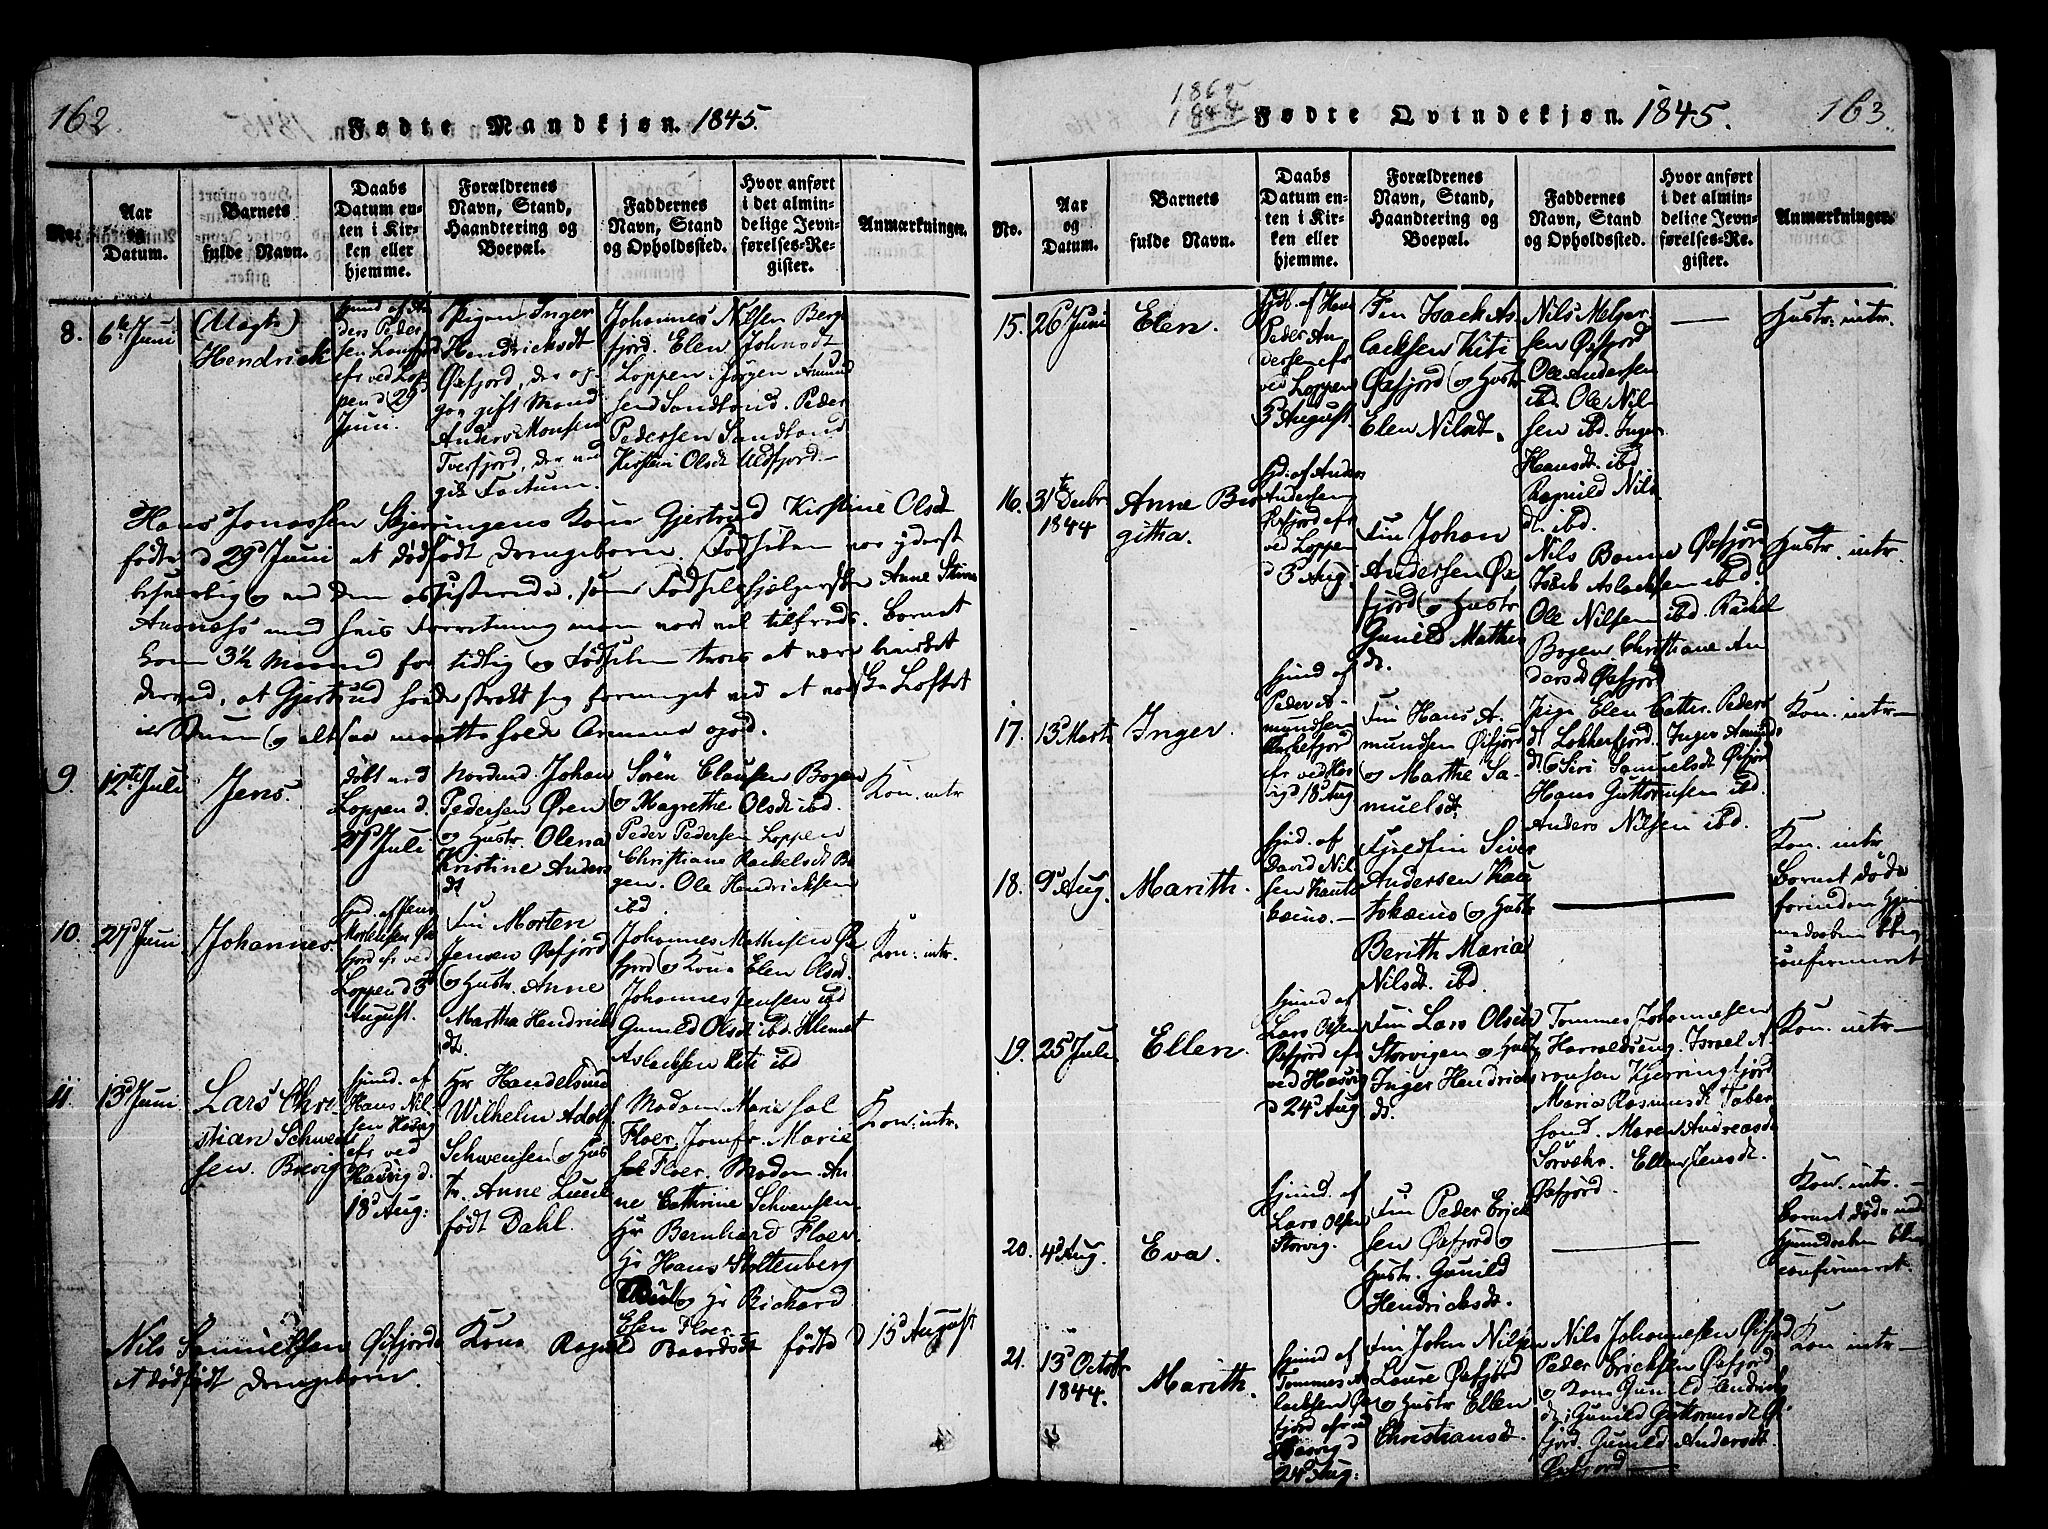 162.
Fødte Mandkjøn. 1845.
No.
Aar
og
Datum.
Barnets
fulde Navn.
Daabs
Datum en-
ten i Kir-
ken eller
hjemme.
Forældrenes
Navn, Stand,
Haandtering og
Boepæl.
Faddernes
Navn, Stand
og Opholdssted.
Hvor anført
i det almin-
delige Jevn-
førelses-Re-
gister.
Anmærkninger.
8.
6te Juni
(Uægte)
Hendrick
Hjmd. af An-
ders Peder-
sen
efr ved Lop-
pen d 29d
Juni.
Pigen Inger
Hendricksdt
Øxfjord, der op-
gav gift Mand
Anders Monsen
Tverfjord, der ved-
gik Factum.
Johannes Nilsen Berg-
fjord. Elen Johnsdt
Loppen. Jørgen Amund
sen Sandland. Peder
Pedersen Sandland
Kirsten Olsdt Ulsfjord.
Hans Jonassen Skjerringens Kone Gjertrud Kirstine Olsdt
fødte d 29d Juni et dødfødt Drengebarn. Fødselen var yderst
besværlig og ved den assisterede, som Fødselshjælperske Anne
med hvis Forretning man vard vel tilfreds. Barnet
kom 3½ Maaned for tidlig og Fødselen troes at være hindret
derved, at Gjertrud havde strakt sig formeget ved at
og altsaa maatte holde Armene opad.
9.
12te Juli
Jens.
Døbt ved
Loppen d.
27d Juli
Nordmd. Johan
Pedersen Øren
og Hustr. Olena
Kristine Anders
dt
Søren Clausen Bogen
og Magrethe Olsdt ibd.
Peder Pedersen Loppen
Christiane Rachelsdt Bo-
gen. Ole Hendricksen
ibd
Kon. intr
10.
27d Juni
Johannes
Hjd. af Jens
Mortensen Øx-
fjord efr ved
Loppen d 3d
August.
Fin Morten
Jensen Øxfjord
og Hustr. Anne
Martha Hendrick
dt.
Johannes Mathisen Øx-
fjord og Kone Elen Olsdt.
Johannes Jensen ibd
Gunild Olsdt ibd. Klemet
Aslacksen Kiti ibd
Kon: intr.
11.
13d Juni
Lars Chri
stian Schwen
sen. Brevig
Hjmd. af
Hans Nil-
sen Hasvig
efr ved
Hasvig d.
18d Aug:
Hr Handelsmd
Wilhelm Adolf
Schwensen og Hus
tr. Anne Lucie
født Dahl.
Madam Marie sal
Floer. Jomfr. Marie
sal Floer. Madam An-
ne Cathrine Schwensen.
Hr Bernhard Floer.
Hr Hans Stoltenberg
og Hr Richard
Esen Floer.
Kon: intr.
Nils Samuelsen Øxfjords Kone Ragnild Baardsdt fødte d 15d August
et dødfødt Drengebarn.
1865
1844
Fødte Qvindekjøn. 1845.
163.
No.
Aar
og
Datum.
Barnets
fulde Navn.
Daabs
Datum en-
ten i Kir-
ken eller
hjemme.
Forældrenes
Navn, Stand,
Haandtering og
Boepæl.
Faddernes
Navn, Stand
og Opholdssted.
Hvor anført
i det almin-
delige Jevn-
førelses-Re-
gister.
Anmærkninger.
15.
26 Juni
Elen.
Hjd. af Hans
Peder An-
dersen efr
ved Loppen
3d August
Fin Isack As-
lacksen Kiti
Øxfjord og Hustr
Elen Nilsdt.
Nils Melger-
sen Øxfjord
Ole Andersen
ibd. Ole Nil-
sen ibd. Inger
Hansdt. ibd
Ragnild Nils
dt. ibd.
Hustr: intr.
16.
31te Decbr
1844
Anne Bir
githa.
Hjd: af Anders
Andersen
Øxfjord efr
ved Loppen
d 3d Aug.
Fin Johan
Andersen Øx
fjord og Hustr
Gunild Mathis
dt.
Nils Bonne Øxfjord
Isack Aslacksen ibd.
Ole Nilsen ibd. Rachel
Bogen Christiane An
dersdt Øxfjord
Hustr. intr.
17.
13d Marts
Inger.
Hjmd. af
Peder A-
mundsen
efr ved Has-
vig d 18d Aug
Fin Hans A-
mundsen Øxfjord
og Marthe Sa-
muelsdt.
Pige Elen Cathr. Peders
dt. Lokkerfjord. Inger Amunds
dt og Siri Samuelsdt Øxfjord
Hans Guttormsen ibd.
Anders Nilsen ibd.
Kon. intr
18.
9d Aug.
Marith.
Hjmd. af
David Nil-
sen Kauto
keino.
Fjeldfin Siver
Andersen Kau
tokeino og Hustr
Berith Maria
Nilsdt. ibd.
Kon. intr
Barnet døde
forinden Hjem-
medaaben blev
confirmeret
19.
25 Juli
Ellen.
Hjmd. af
Lars Olsen
Øxfjord efr
ved Hasvig
d 24d Aug
Fin Lars Olsen
Storvigen og Hustr
Inger Hendricks
dt.
Tommes Johannesen
Haraldseng. Israel A-
ronsen Kjerringfjord
Maria Rasmusdt Taber-
sand. Maren Andreasdt
Sørvær. Ellen Jensdt.
Øxfjord.
Kon. intr
20.
4d Aug.
Eva.
Hjmd. af
Lars Olsen
Storvig.
Fin Peder Erick
sen Øxfjord og
Hustr. Gunild
Hendricksdt.
Kon. intr.
Barnet døde ind
Hjmdaaben blev
confirmeret.
21.
13d Octobr
1844.
Marith.
Hjmd. af
Tommes As-
lacksen Øx-
fjord efr ved
Hasvig d
24d Aug:
Fin John Nilsen
Laure Øxfjord
og Hustr Ellen
Christiansdt.
Nils Johannesen Øxfjord
Peder Ericksen Øxfjord
og Kone Gunild Hendricks
dt. Gunild Guttormsdt Øx-
fjord. Gunild Andersdt.
Øxfjord
Kon intr